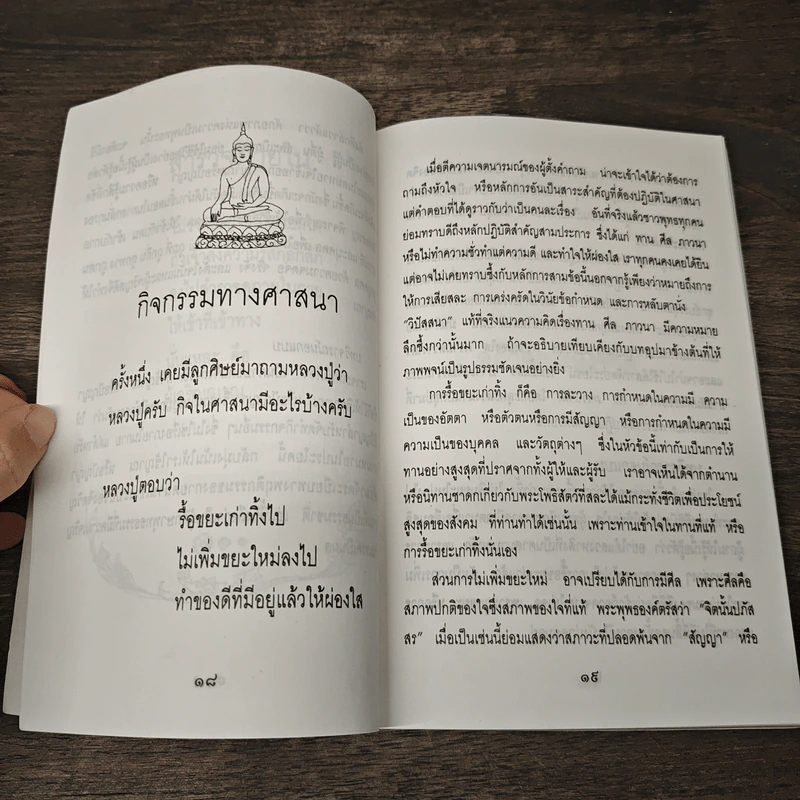 กิจกรรมทางศาสนา
ครั้งหนึ่ง เคยมีลูกศิษย์มาถามหลวงปู่ว่า
หลวงปู่ครับ กิจในศาสนามีอะไรบ้างครับ
หลวงปู่ตอบว่า
รื้อขยะเก่าทิ้งไป
ไม่เพิ่มขยะใหม่ลงไป
ทำของดีที่มีอยู่แล้วให้ผ่องใส
๑๘
เมื่อตีความเจตนารมณ์ของผู้ตั้งคำถาม น่าจะเข้าใจได้ว่าต้องการ
ถามถึงหัวใจ หรือหลักการอันเป็นสาระสำคัญที่ต้องปฏิบัติในศาสนา
แต่คำตอบที่ได้ดูราวกับว่าเป็นคนละเรื่อง อันที่จริงแล้วชาวพุทธทุกคน
ย่อมทราบดีถึงหลักปฏิบัติสำคัญสามประการ ซึ่งได้แก่ ทาน ศีล ภาวนา
หรือไม่ทำความชั่วทำแต่ความดี และทำใจให้ผ่องใส เราทุกคนคงเคยได้ยิน
แต่อาจไม่เคยทราบซึ้งกับหลักการสามข้อนี้นอกจากรู้เพียงว่าหมายถึงการ
ให้การเสียสละ การเคร่งครัดในวินัยข้อกำหนด และการหลับตานั่ง
"วิปัสสนา" แท้ที่จริงแนวความคิดเรื่องทาน ศีล ภาวนา มีความหมาย
ลึกซึ้งกว่านั้นมาก ถ้าจะอธิบายเทียบเคียงกับบทอุปมาข้างต้นที่ให้
ภาพพจน์เป็นรูปธรรมชัดเจนอย่างยิ่ง
การรื้อขยะเก่าทิ้ง ก็คือ การละวาง การกำหนดในความมี ความ
เป็นของอัตตา หรือตัวตนหรือการมีสัญญา หรือการกำหนดในความมี
ความเป็นของบุคคล และวัตถุต่างๆ ซึ่งในหัวข้อนี้เท่ากับเป็นการให้
ทานอย่างสูงสุดที่ปราศจากทั้งผู้ให้และผู้รับ เราอาจเห็นได้จากตำนาน
หรือนิทานชาดกเกี่ยวกับพระโพธิสัตว์ที่สละได้แม้กระทั่งชีวิตเพื่อประโยชน์
สูงสุดของสังคม ที่ท่านทำได้เช่นนั้น เพราะท่านเข้าใจในทานที่แท้ หรือ
การรื้อขยะเก่าทิ้งนั่นเอง
ส่วนการไม่เพิ่มขยะใหม่ อาจเปรียบได้กับการมีศีล เพราะศีลคือ
สภาพปกติของใจซึ่งสภาพของใจที่แท้ พระพุทธองค์ตรัสว่า "จิตนั้นปภัส
สร" เมื่อเป็นเช่นนี้ย่อมแสดงว่าสภาวะที่ปลอดพ้นจาก "สัญญา" หรือ
๑๙